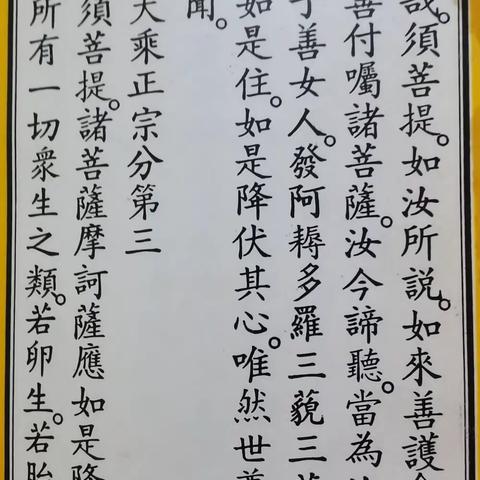 哉。須菩提。如汝所說。如來善護
善付囑諸菩薩。汝今諦聽。當為
子善女人。發阿耨多羅三藐三
如是住。如是降伏其心。唯然世尊
聞。
大乘正宗分第三
須菩提。諸菩薩摩訶薩應如是降
所有一切眾生之類。若卵生。若胎